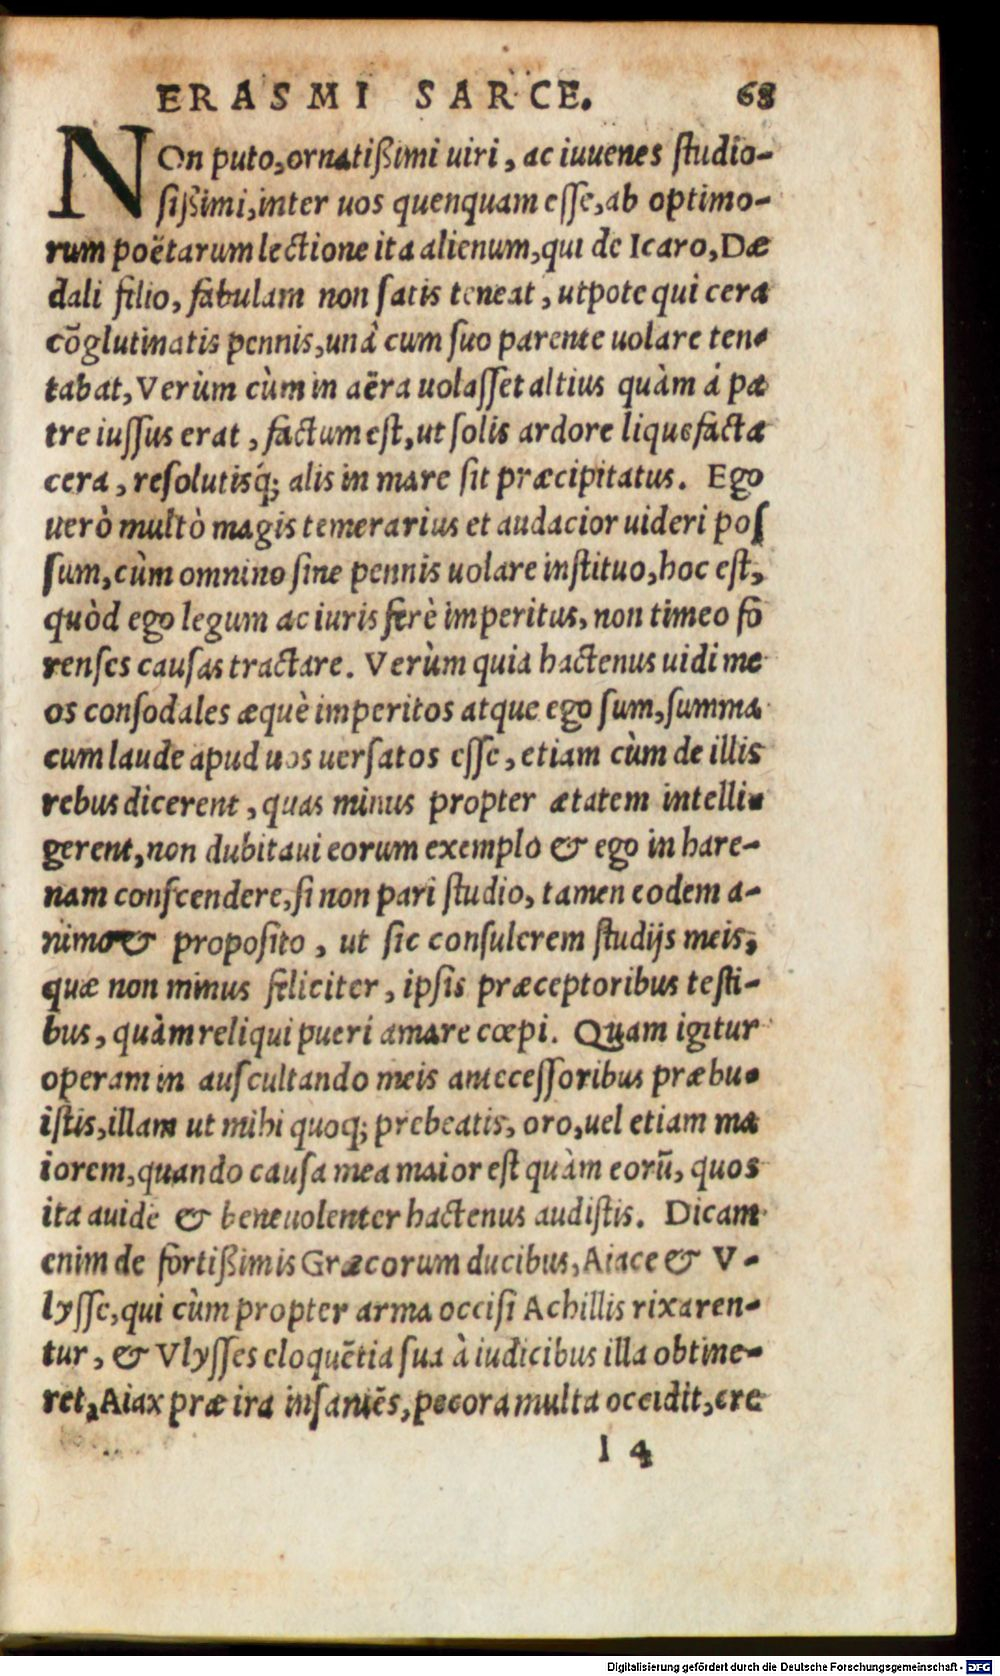 ERASMI SARCE. 68
NOn puto, ornatißimi uiri, ac iuuenes studio-
sißimi, inter uos quenquam esse, ab optimo-
rum poëtarum lectione ita alienum, qui de Icaro, Dæ
dali filio, fabulam non satis teneat, utpote qui cera
cõglutinatis pennis, unà cum suo parente uolare ten-
tabat, Verùm cùm in aëra uolasset altius quàm à pa
tre iussus erat, factum est, ut solis ardore liquefacta
cera, resolutisq́; alis in mare sit præcipitatus. Ego
uerò multò magis temerarius et audacior uideri pos
sum, cùm omnino sine pennis uolare instituo, hoc est,
quòd ego legum ac iuris ferè imperitus, non timeo fo
renses causas tractare. Verùm quia hactenus uidi me
os consodales æquè imperitos atque ego sum, summa
cum laude apud uos uersatos esse, etiam cùm de illis
rebus dicerent, quas minus propter ætatem intelli-
gerent, non dubitaui eorum exemplo & ego in hare-
nam conscendere, si non pari studio, tamen eodem a-
nimo & proposito, ut sic consulerem studijs meis,
quæ non minus feliciter, ipsis præceptoribus testi-
bus, quàm reliqui pueri amare cœpi. Quam igitur
operam in auscultando meis antecessoribus præbu-
istis, illam ut mihi quoq; prebeatis, oro, uel etiam ma
iorem, quando causa mea maior est quàm eorũ, quos
ita auide & beneuolenter hactenus audistis. Dicam
enim de fortißimis Græcorum ducibus, Aiace & V-
lysse, qui cùm propter arma occisi Achillis rixaren-
tur, & Vlysses eloquẽtia sua à iudicibus illa obtine-
ret, Aiax præ ira insaniẽs, pecora multa occidit, cre
I 4
Digitalisierung gefördert durch die Deutsche Forschungsgemeinschaft - DFG